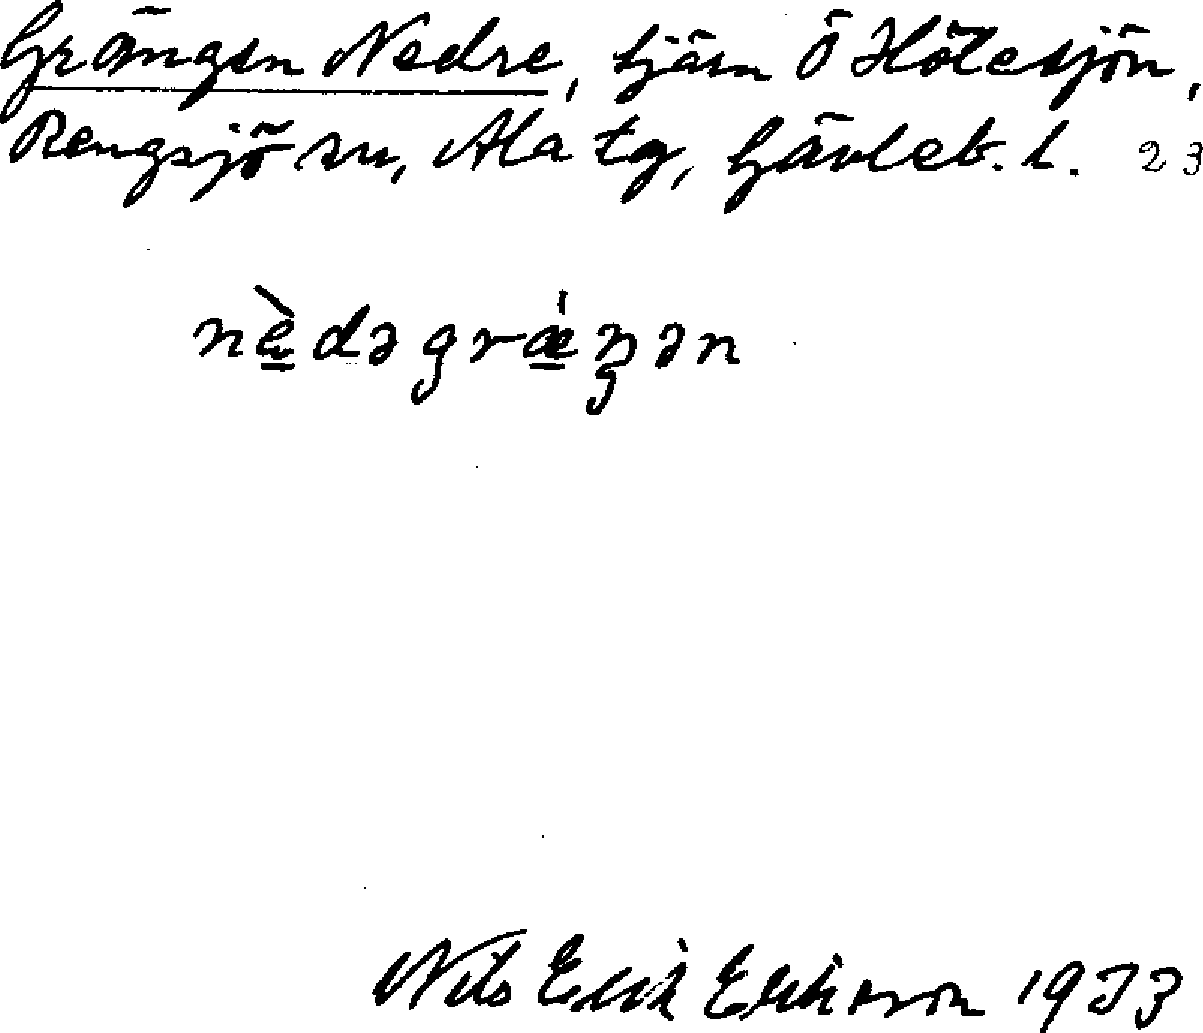 Grängen Nedre, tjärn Ö Hölesjön,
Rengsjö sn, Ala tg, Gävleb. l. 23
nèdəgrǽŋən
Nils Erik Erikson 1933